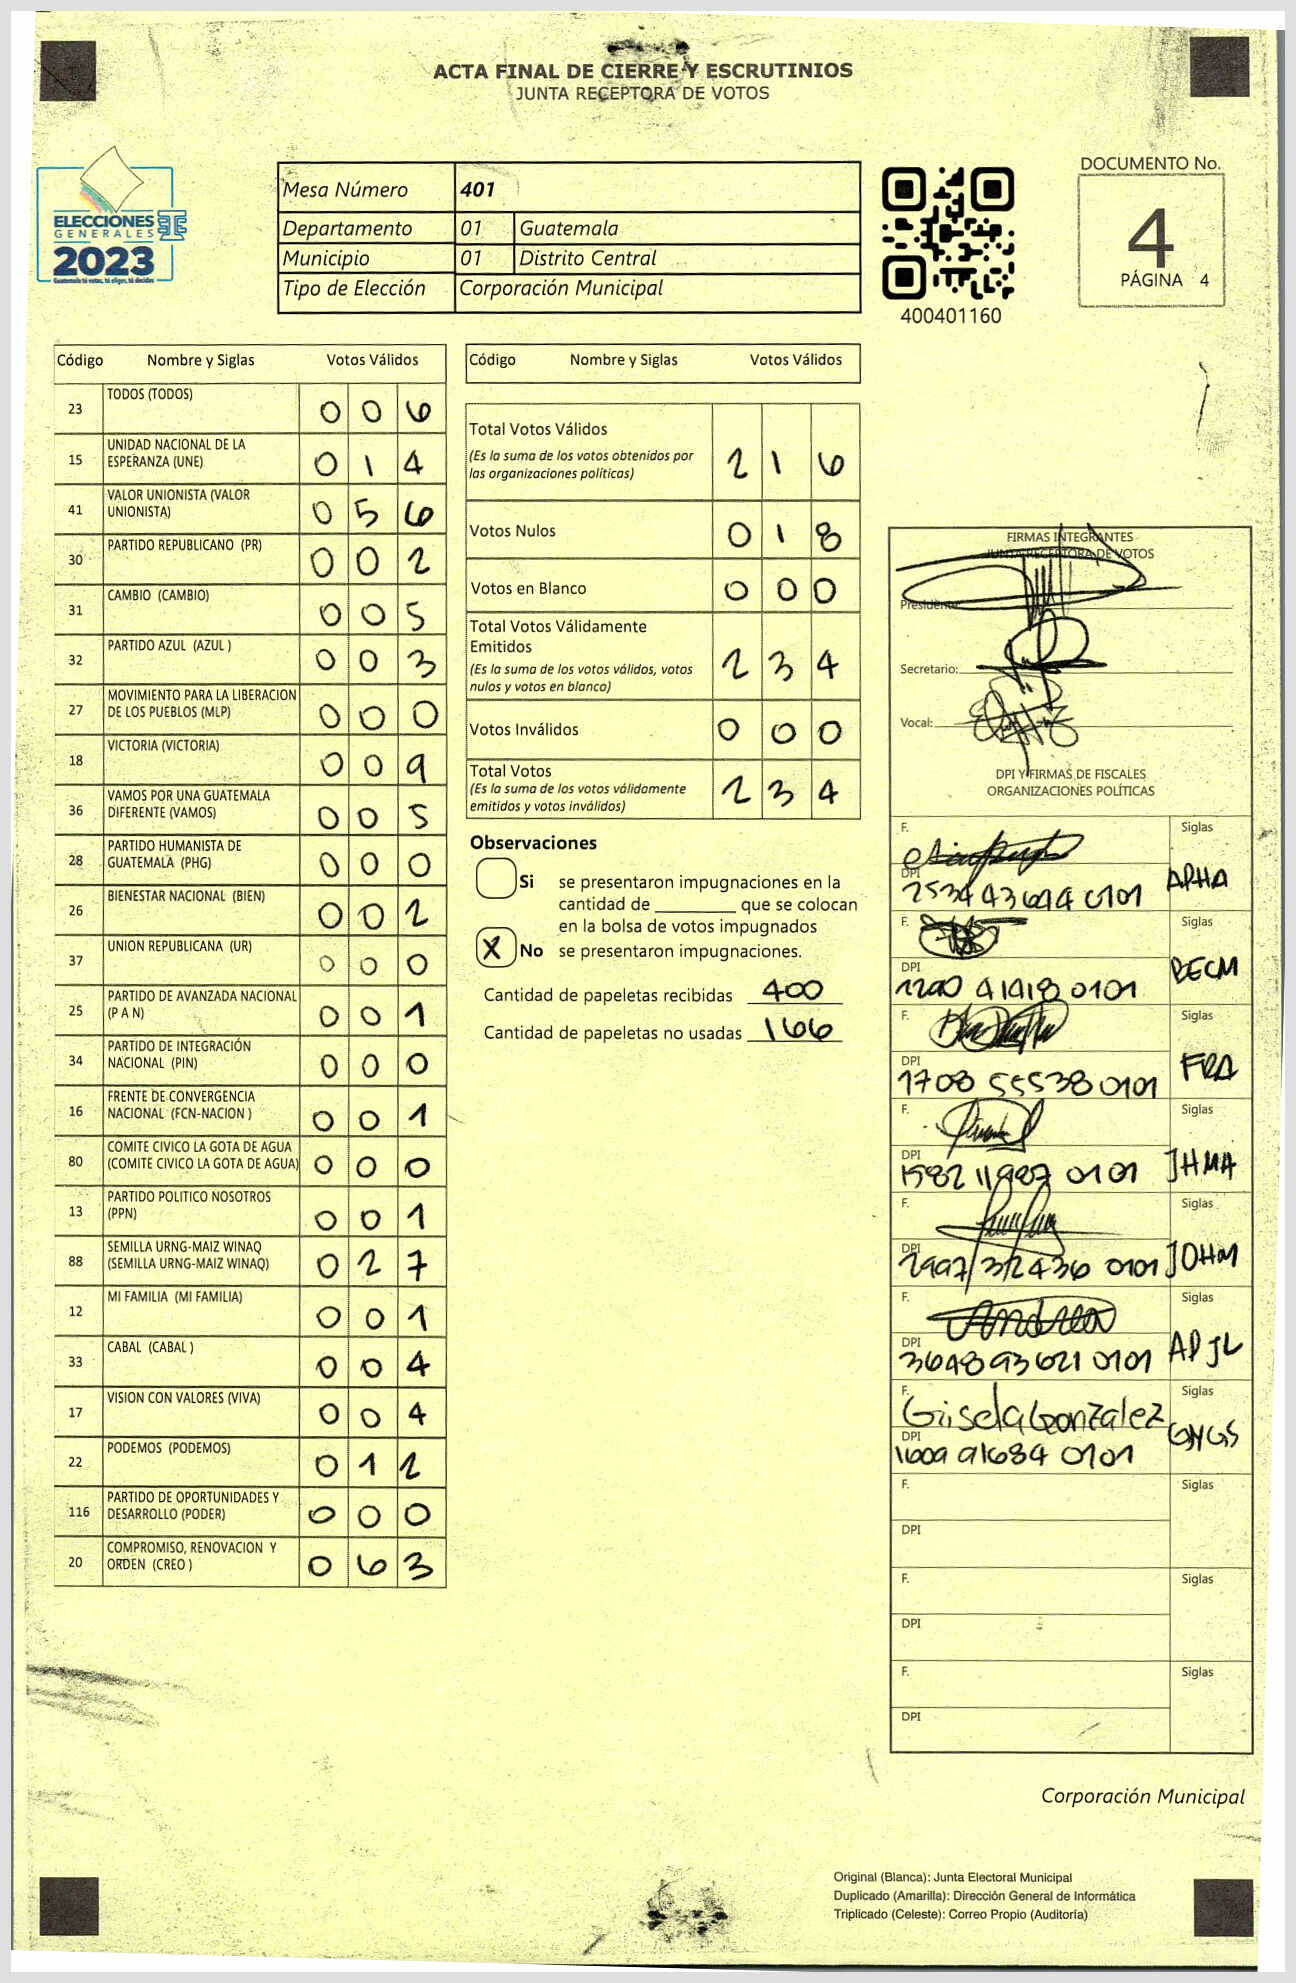 ACTA FINAL DE CIERRE Y ESCRUTINIOS
JUNTA RECEPTORA DE VOTOS
ELECCIONES
GENERALES
2023
Guatemala tú votas, tú eliges, tú decides
Mesa Número 401
Departamento 01 Guatemala
Municipio 01 Distrito Central
Tipo de Elección Corporación Municipal
400401160
DOCUMENTO No.
4
PÁGINA 4
Código Nombre y Siglas Votos Válidos
23 TODOS (TODOS) 0 0 6
15 UNIDAD NACIONAL DE LA ESPERANZA (UNE) 0 1 4
41 VALOR UNIONISTA (VALOR UNIONISTA) 0 5 6
30 PARTIDO REPUBLICANO (PR) 0 0 2
31 CAMBIO (CAMBIO) 0 0 5
32 PARTIDO AZUL (AZUL ) 0 0 3
27 MOVIMIENTO PARA LA LIBERACION DE LOS PUEBLOS (MLP) 0 0 0
18 VICTORIA (VICTORIA) 0 0 9
36 VAMOS POR UNA GUATEMALA DIFERENTE (VAMOS) 0 0 5
28 PARTIDO HUMANISTA DE GUATEMALA (PHG) 0 0 0
26 BIENESTAR NACIONAL (BIEN) 0 0 2
37 UNION REPUBLICANA (UR) 0 0 0
25 PARTIDO DE AVANZADA NACIONAL (P A N) 0 0 1
34 PARTIDO DE INTEGRACIÓN NACIONAL (PIN) 0 0 0
16 FRENTE DE CONVERGENCIA NACIONAL (FCN-NACION ) 0 0 1
80 COMITE CIVICO LA GOTA DE AGUA (COMITE CIVICO LA GOTA DE AGUA) 0 0 0
13 PARTIDO POLITICO NOSOTROS (PPN) 0 0 1
88 SEMILLA URNG-MAIZ WINAQ (SEMILLA URNG-MAIZ WINAQ) 0 2 7
12 MI FAMILIA (MI FAMILIA) 0 0 1
33 CABAL (CABAL ) 0 0 4
17 VISION CON VALORES (VIVA) 0 0 4
22 PODEMOS (PODEMOS) 0 1 2
116 PARTIDO DE OPORTUNIDADES Y DESARROLLO (PODER) 0 0 0
20 COMPROMISO, RENOVACION Y ORDEN (CREO ) 0 6 3
Código Nombre y Siglas Votos Válidos
Total Votos Válidos 2 1 6
(Es la suma de los votos obtenidos por
las organizaciones políticas)
Votos Nulos 0 1 8
Votos en Blanco 0 0 0
Total Votos Válidamente
Emitidos 2 3 4
(Es la suma de los votos válidos, votos
nulos y votos en blanco)
Votos Inválidos 0 0 0
Total Votos 2 3 4
(Es la suma de los votos válidamente
emitidos y votos inválidos)
Observaciones
Si se presentaron impugnaciones en la
cantidad de ________ que se colocan
en la bolsa de votos impugnados
X No se presentaron impugnaciones.
Cantidad de papeletas recibidas 400
Cantidad de papeletas no usadas 166
FIRMAS INTEGRANTES
JUNTA RECEPTORA DE VOTOS
Presidente:
Secretario:
Vocal:
DPI Y FIRMAS DE FISCALES
ORGANIZACIONES POLÍTICAS
F. Siglas
DPI 2534 43694 0101 APHA
F. Siglas
DPI BECM
F. Siglas
DPI 1708 55538 0101 FRA
F. Siglas
DPI 1582 11987 0101 JHMA
F. Siglas
DPI 2997 32436 0101 JOHM
F. Andrea Siglas
DPI 3648 93621 0101 APJL
F. Gisela Gonzalez Siglas
DPI 1609 91684 0101 GNGS
F. Siglas
DPI
F. Siglas
DPI
F. Siglas
DPI
Corporación Municipal
Original (Blanca): Junta Electoral Municipal
Duplicado (Amarilla): Dirección General de Informática
Triplicado (Celeste): Correo Propio (Auditoría)